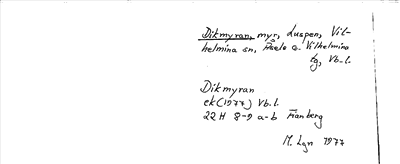 Dikmyran, myr, Luspen, Vil-
helmina sn, Åsele o. Vilhelmina
tg, Vb.l.
Dikmyran
ek (1977) Vb.l.
22 H 8-9 a-b Fianberg
M. Lgn 1977